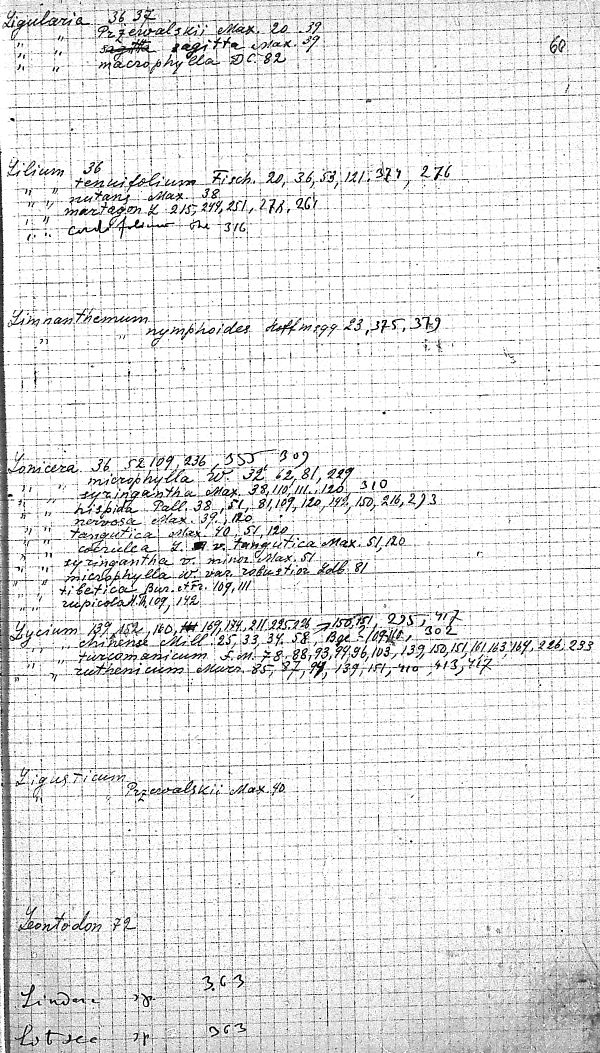 Ligularia 36 37
" " Przewalskii Max. 20 39
60
" " sagitta Max. 39
" " macrophylla DC. 82
Lilium 36
" " tenuifolium Fisch. 20, 36, 53, 121, 374, 276
" " nutans Max. 38
" " martagon L 215, 249, 251, 278, 261
" " 316
Limnanthemum
" " nymphoides Hoffmsgg 23, 375, 379
Lonicera 36, 52 109, 236, 355 309
" " microphylla W. 32, 62, 81, 229
" " syringantha Max. 38, 110, 111, 120, 310
" " hispida Pall. 38, 51, 81, 109, 120, 142, 150, 216, 293
" " nervosa Max. 39, 120
" " tangutica Max 40, 51, 120
" " coerulea L. v. tangutica Max. 51, 120
" " syringantha v. minor Max. 51
" " microphylla W. var. robustior Ldb. 81
" " tibetica Bur. et Fr. 109, 111
" " rupicola H.Th. 109, 142
Lycium 139, 152, 160, 169, 174, 211, 225, 226, 150, 151, 295, 417
" " chinense Mill. 25, 33, 34, 58 Bge - 109, 302
" " turcomanicum F.M. 78, 88, 93, 94, 96, 103, 139, 150, 151, 161, 163, 164, 226, 233
" " ruthenicum Murr. 85, 87, 94, 139, 151, 410, 413, 417
Ligusticum
" " Przewalskii Max. 40
Leontodon 72
Lindera sp. 363
Litsea sp 363